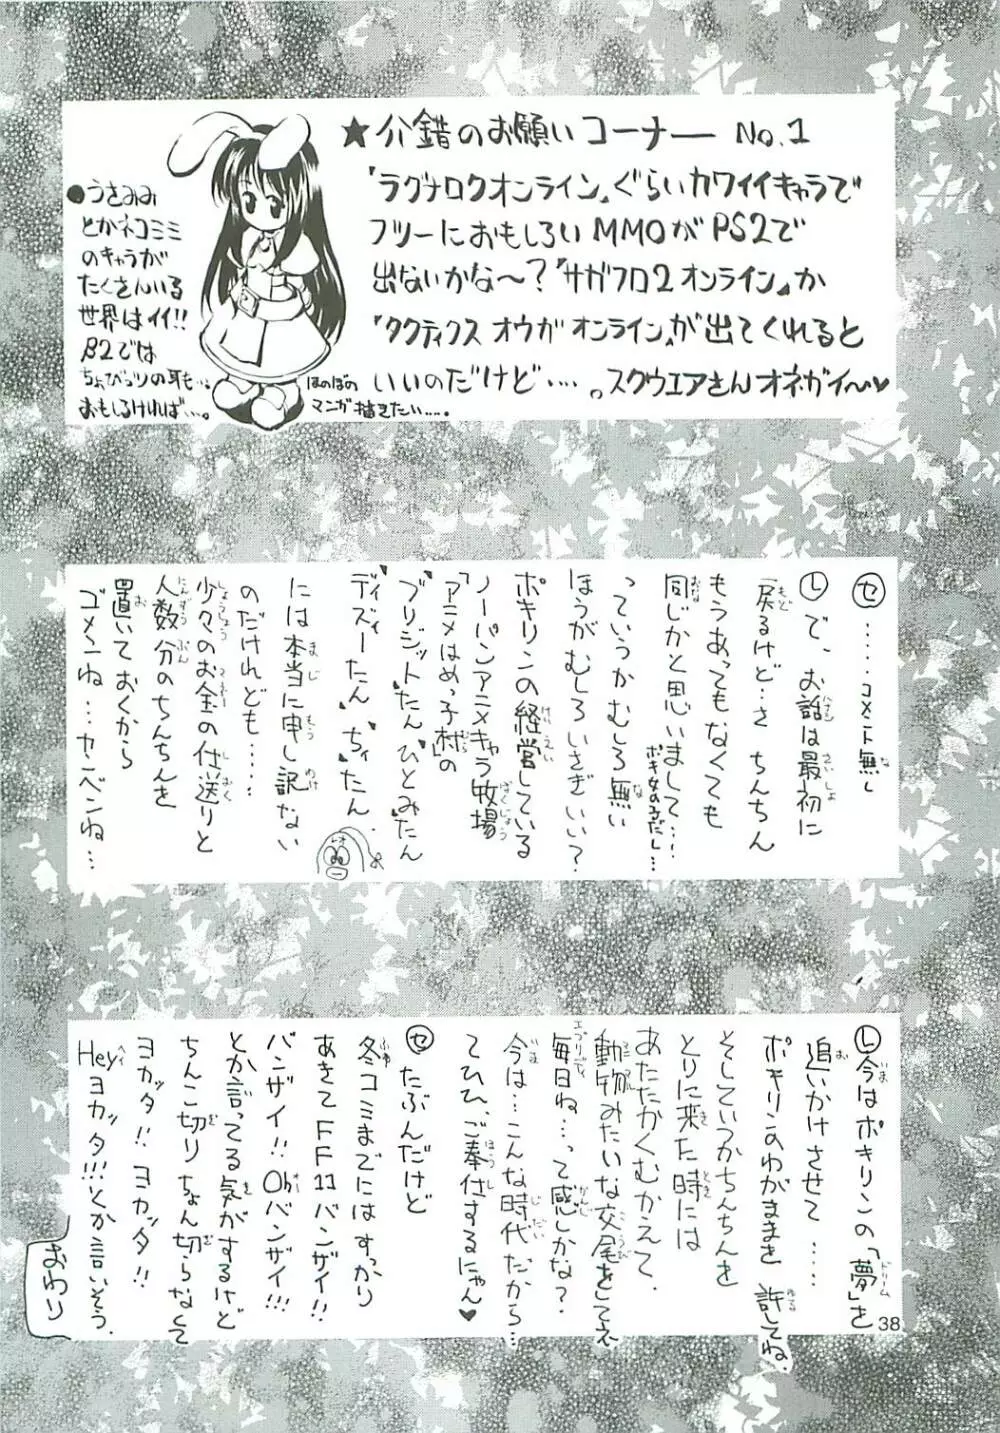 ★介錯のお願いコーナー No.1
『ラグナロクオンライン』ぐらいカワイイキャラで
フツーにおもしろいMMOがPS2で
出ないかな〜?『サガフロ2オンライン』か
『タクティクスオウガオンライン』が出てくれると
いいのだけど…。スクウエアさんオネガイ〜♥
●うさみみ
とかネコミミ
のキャラが
たくさんいる
世界はイイ!!
β2では
ちょびっツの耳も…
おもしろければ…。
ほのぼの
マンガ描きたい…。
セ ……コメント無し
レ で、お話は最初に
戻るけど…さ ちんちん
もうあってもなくても
同じかと思いまして…
ポキ女の子だし…
っていうかむしろ無い
ほうがむしろいさぎいい?
ポキリンの経営している
ノーパンアニメキャラ牧場
「アニメはめっ子村」の
ブリジットたん、ひとみたん
ディズーたん、ちぃたん、
には本当に申し訳ない
のだけれども……
少々のお金の仕送りと
人数分のちんちんを
置いておくから
ゴメンね…カンベンね…
レオ
レ 今はポキリンの「夢」を
追いかけさせて……
ポキリンのわがままを 許してね。
そしていつかちんちんを
とりに来た時には
あたたかくむかえて、
動物みたいな交尾をしてぇ
毎日ね…って感じかな?
今は…こんな時代だから…
てひひ、ご奉仕するにゃん♥
セ たぶんだけど
冬コミまでにはすっかり
あきてFF11バンザイ!!
バンザイ!! Ohバンザイ!!!
とか言ってる気がするけど
ちんこ切り ちょん切らなくて
ヨカッタ!! ヨカッタ!!
Heyヨカッタ!!!とか言いそう。
おわり
38